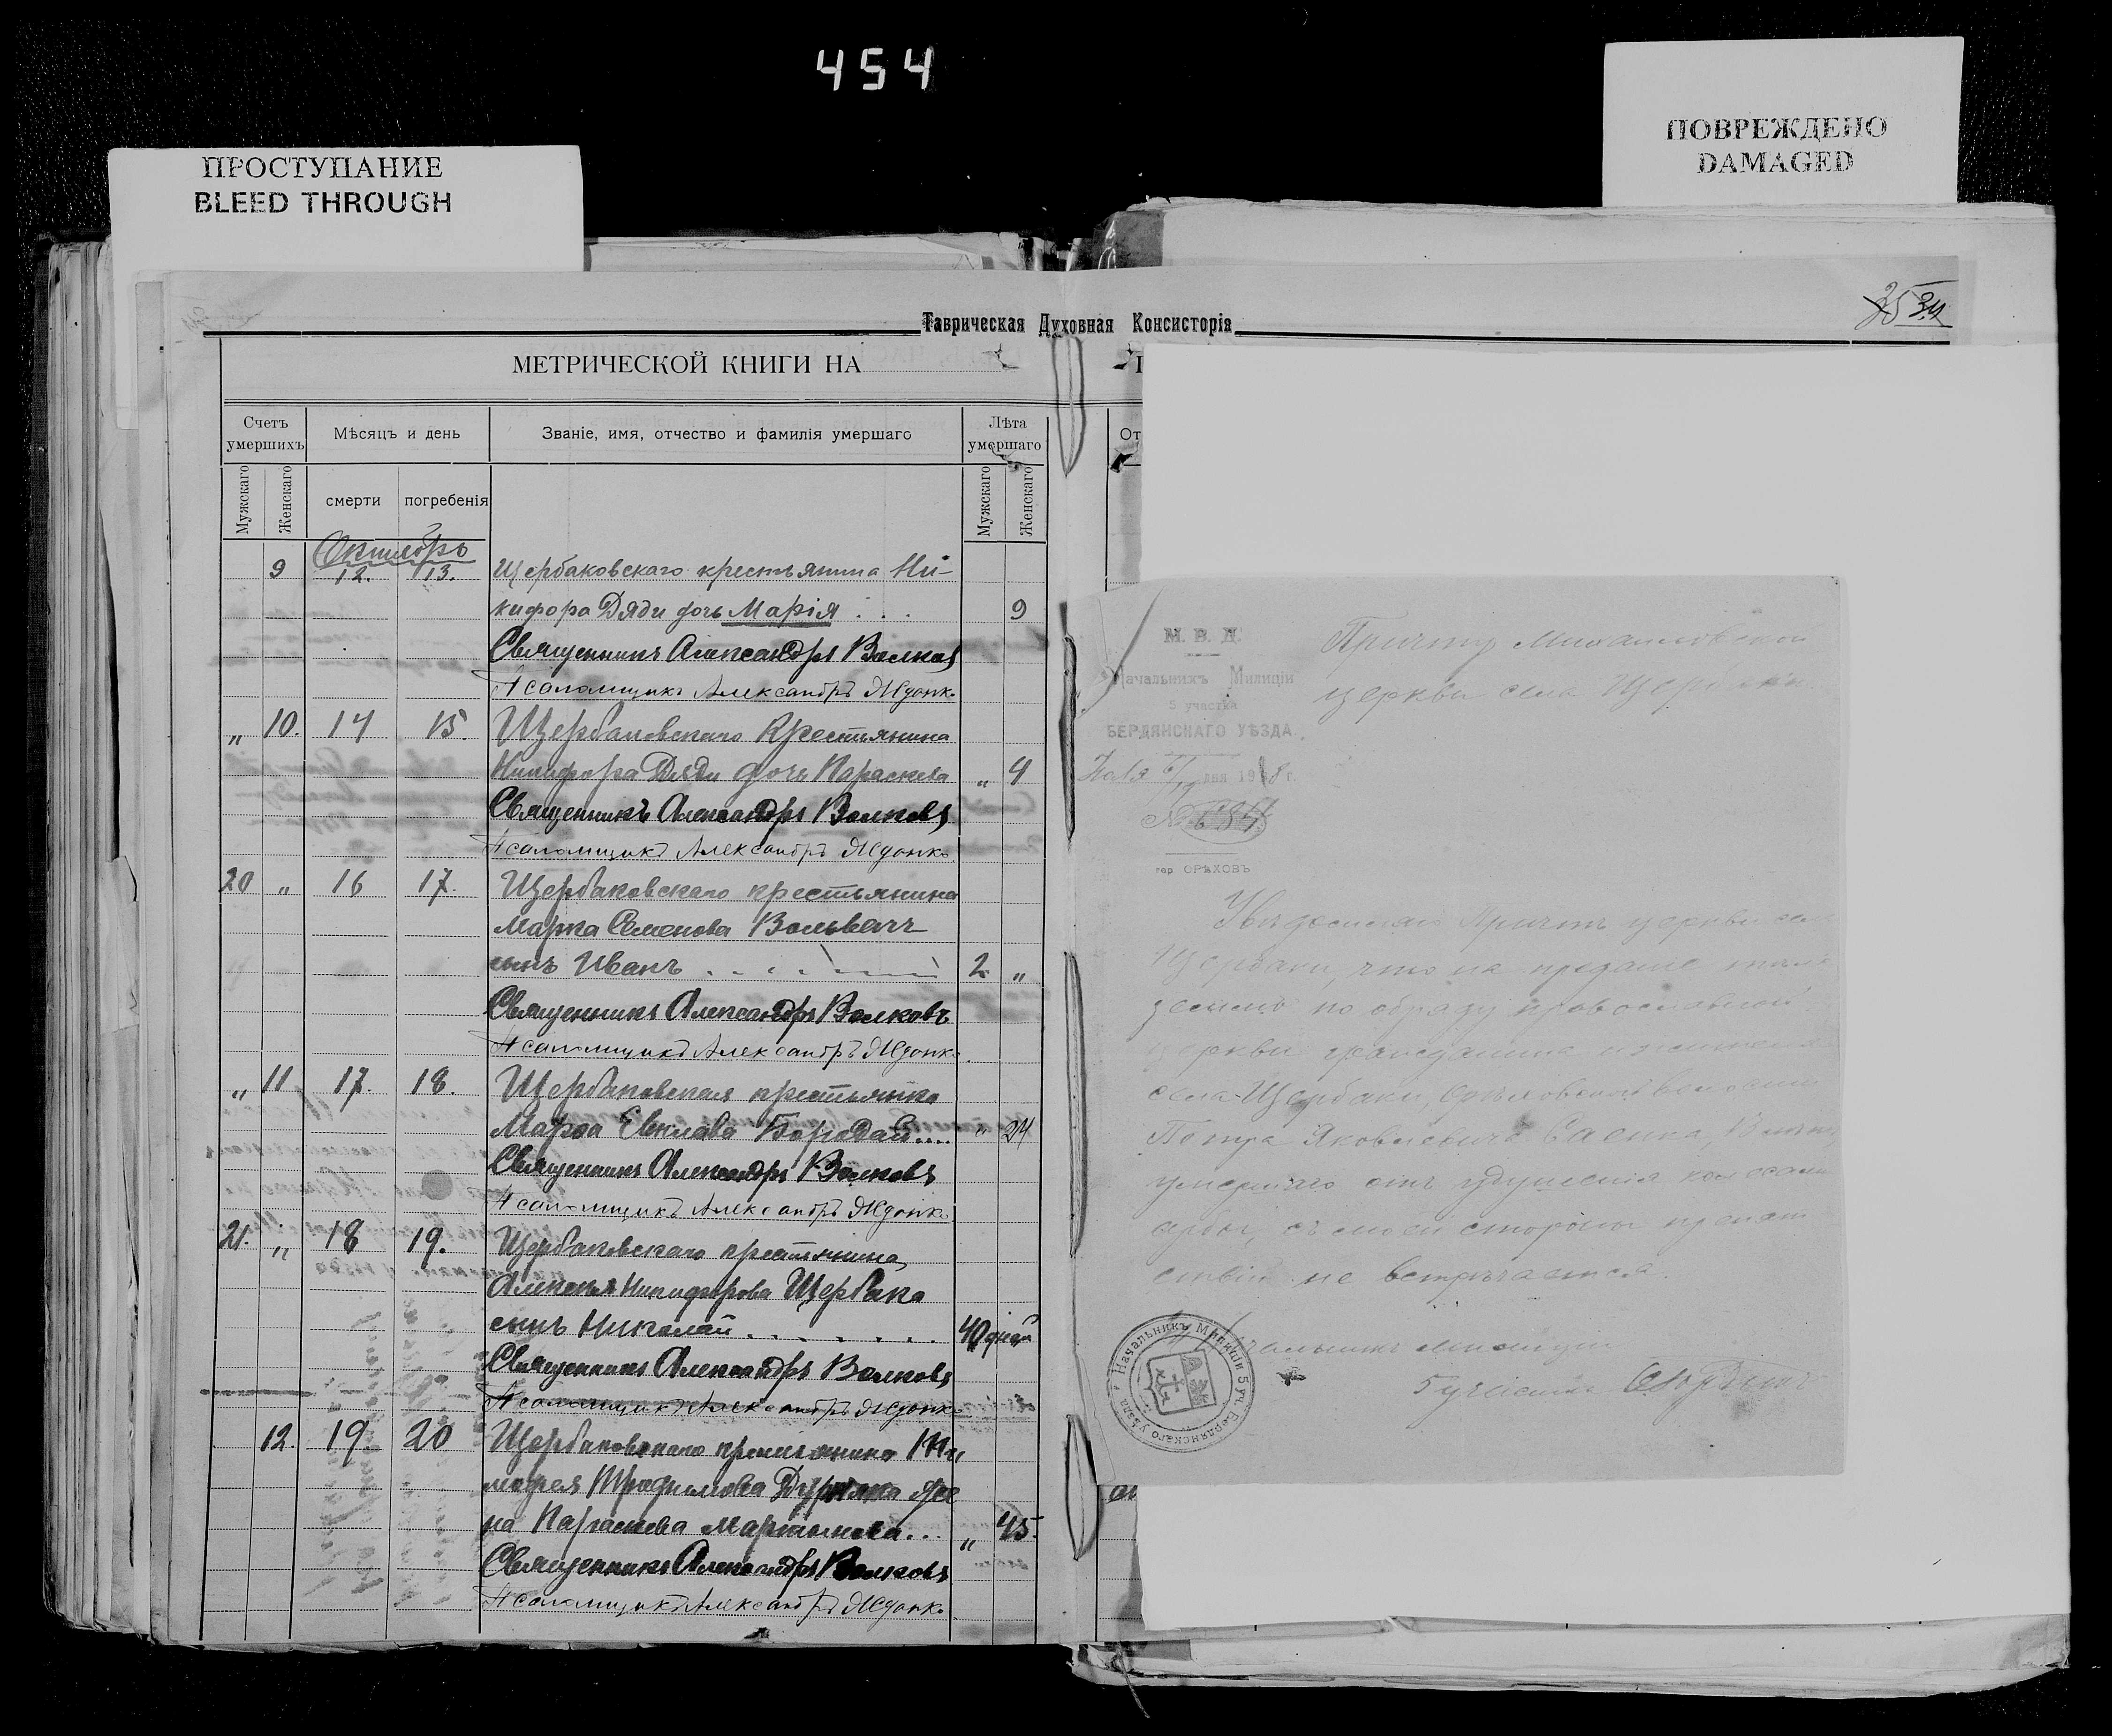 454
ПРОСТУПАНИЕ
BLEED THROUGH
ПОВРЕЖДЕНО
DAMAGED
35 34
Таврическая Духовная Консисторія
МЕТРИЧЕСКОЙ КНИГИ НА
Счетъ умершихъ
Мѣсяцъ и день
Званіе, имя, отчество и фамилія умершаго
Лѣта умершаго
Мужскаго Женскаго
смерти погребенія
Мужскаго Женскаго
Октябрь
9 12. 13. Щербаковскаго крестьянина Ни-
кифора Дяди дочь Марія . . . 9
Священникъ Александръ Волковъ
Псаломщикъ Александръ
„ 10. 14 15. Щербаковскаго Крестьянина
Никифора Дяди дочь Параскева „ 4
Священникъ Александръ Волковъ
Псаломщикъ Александръ
20 „ 16 17. Щербаковскаго крестьянина
Марка Семенова Вольвачъ
сынъ Иванъ 2 „
Священникъ Александръ Волковъ
Псаломщикъ Александръ
„ 11 17. 18. Щербаковская крестьянка
Бородай.... „ 24
Священникъ Александръ Волковъ
Псаломщикъ Александръ
21. „ 18 19. Щербаковскаго крестьянина
Алексея Никифорова Щербака
сынъ Николай 40 дней
Священникъ Александръ Волковъ
Псаломщикъ Александръ
12. 19 20 Щербаковскаго крестьянина Ти
мофея Трофимова же
на Параскева Мартынова... „ 45.
Священникъ Александръ Волковъ
Псаломщикъ Александръ
От
М. В. Д.
Начальникъ Милиціи
5 участка
БЕРДЯНСКАГО УѢЗДА.
дня 1918 г.
№ 684
гор ОРѢХОВЪ
Причту Михайловской
церкви села Щербаки
Увѣдомляю Причтъ церкви села
Щербаки, что на преданіе тѣла
землѣ по обряду православной
церкви гражданина и жителя
села Щербаки, Орѣховской волости
Петра Яковлевича
умершаго отъ колесами
арбы, съ моей стороны препят
ствій не встрѣчается.
Начальникъ милиціи
5 участка
Начальникъ Милиціи 5 уч. Бердянскаго уѣзда